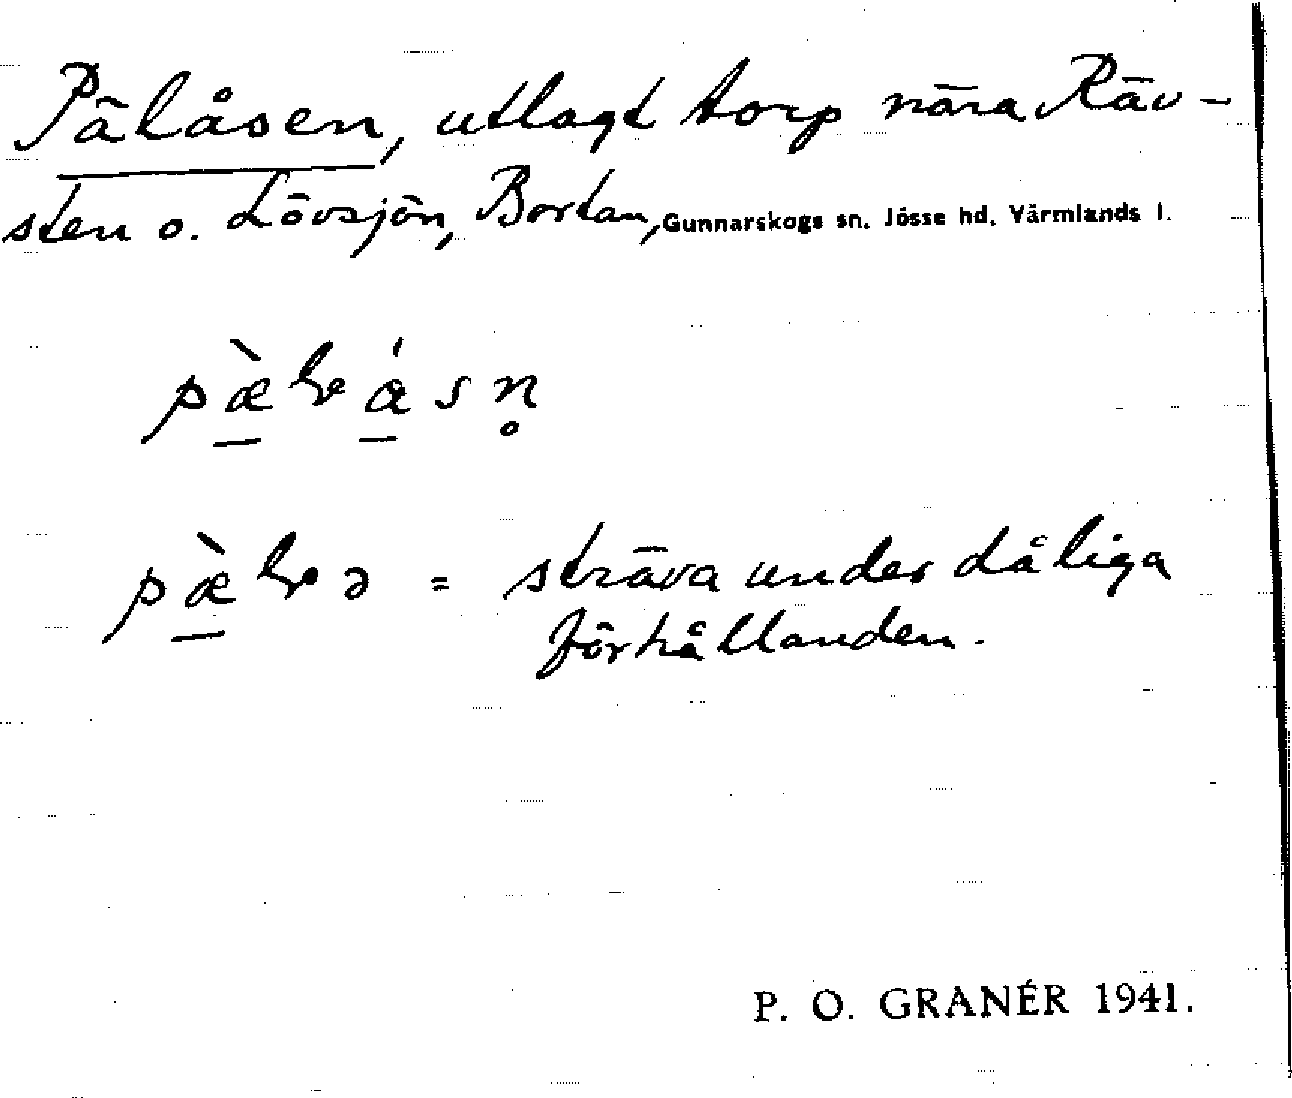 Pälåsen, utlagt torp nära Räv-
sten o. Lövsjön, Bortan, Gunnarskogs sn. Jösse hd. Värmlands l.
pæ̀lɐásn̥
pæ̀lɐə = sträva under dåliga
förhållanden.
P. O. GRANÉR 1941.